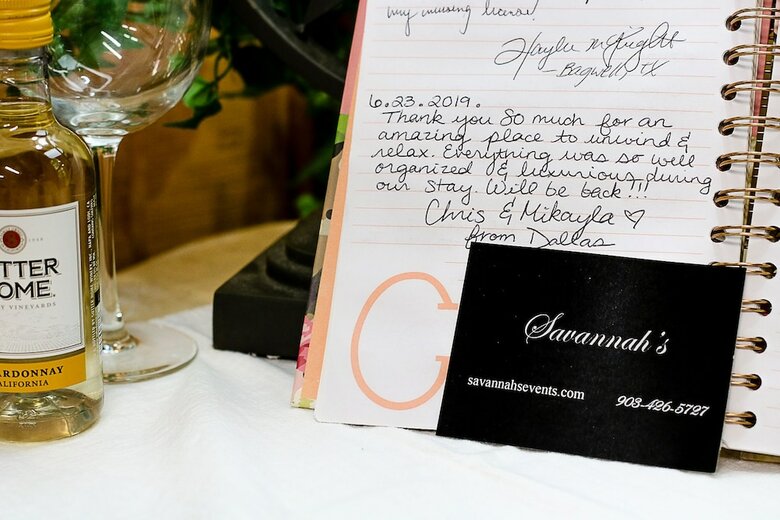 my nursing license!
Haylee McKnight
- Bagwell, TX
6.23.2019.
Thank you SO much for an
amazing place to unwind &
relax. Everything was so well
organized & luxurious during
our stay. Will be back!!!
Chris & Mikayla ♡
from Dallas
Savannah's
savannahsevents.com
903-426-5727
TTER
OME
VINEYARDS
RDONNAY
ALIFORNIA